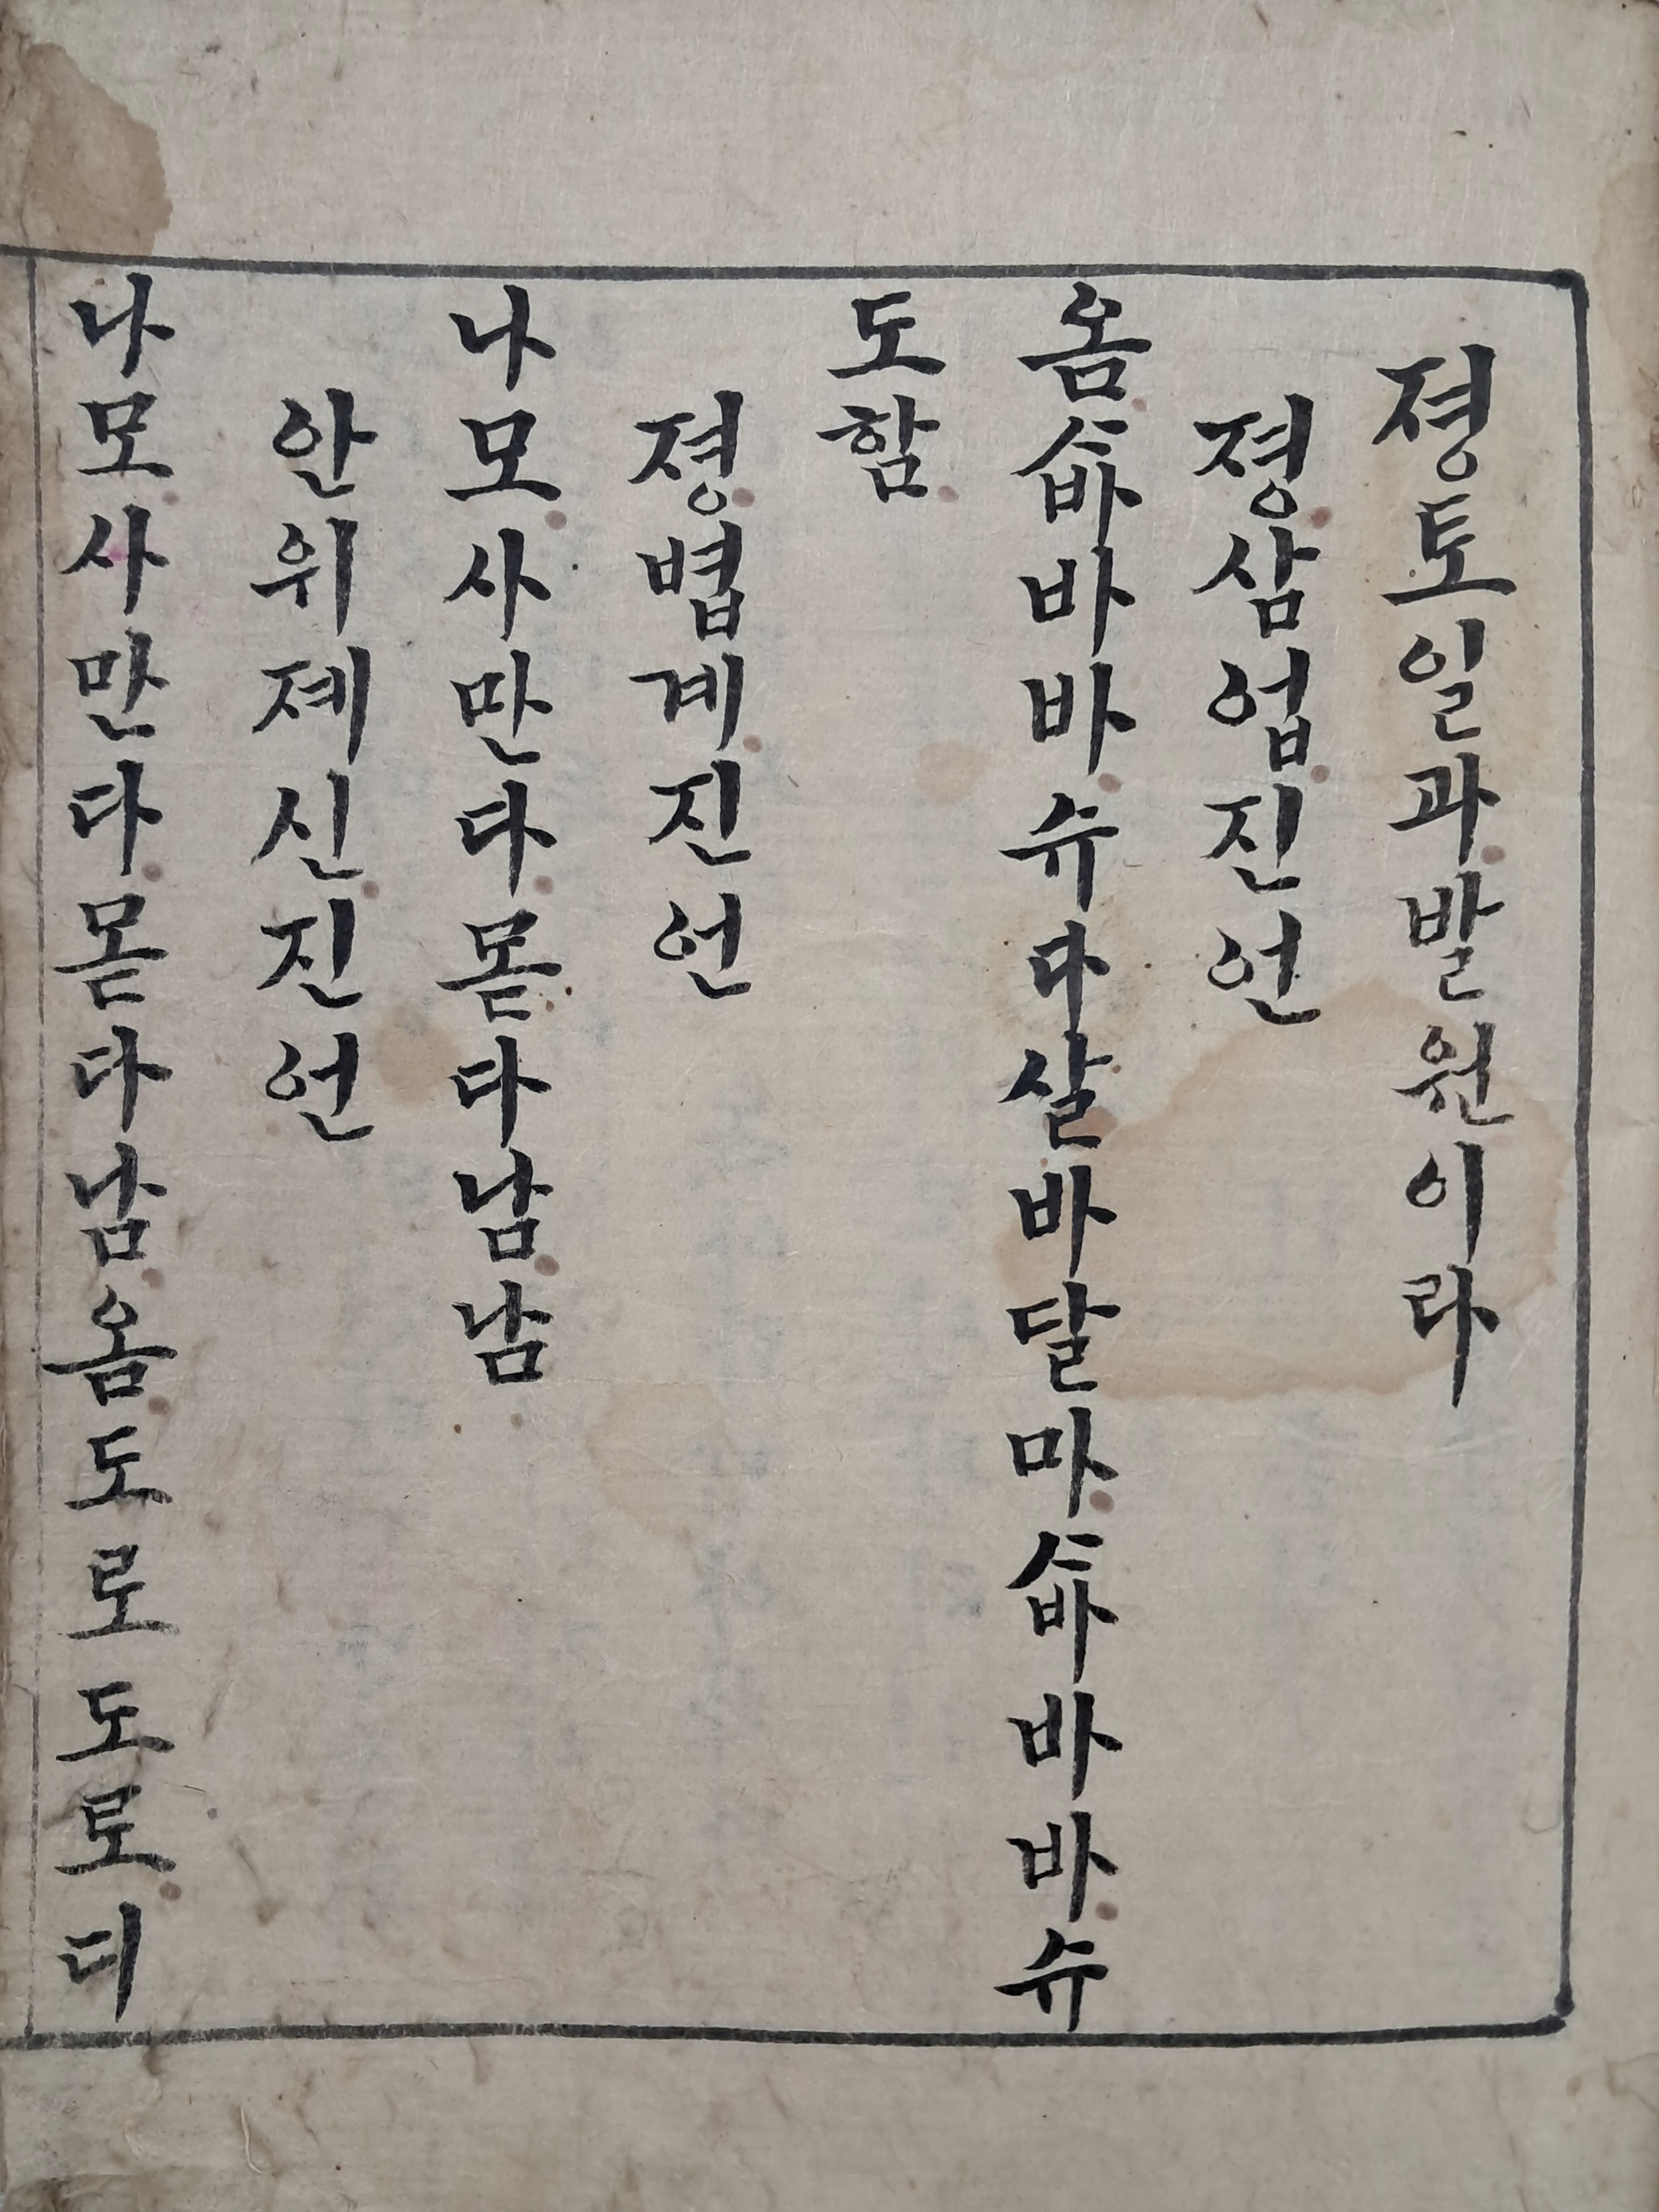 졍토일과발원이라
졍삼업진언
옴스바바바슈다살바달마스바바바슈
도함
졍볍계진언
나모사만다몯다남남
안위졔신진언
나모사만다몯다남옴도로도로디